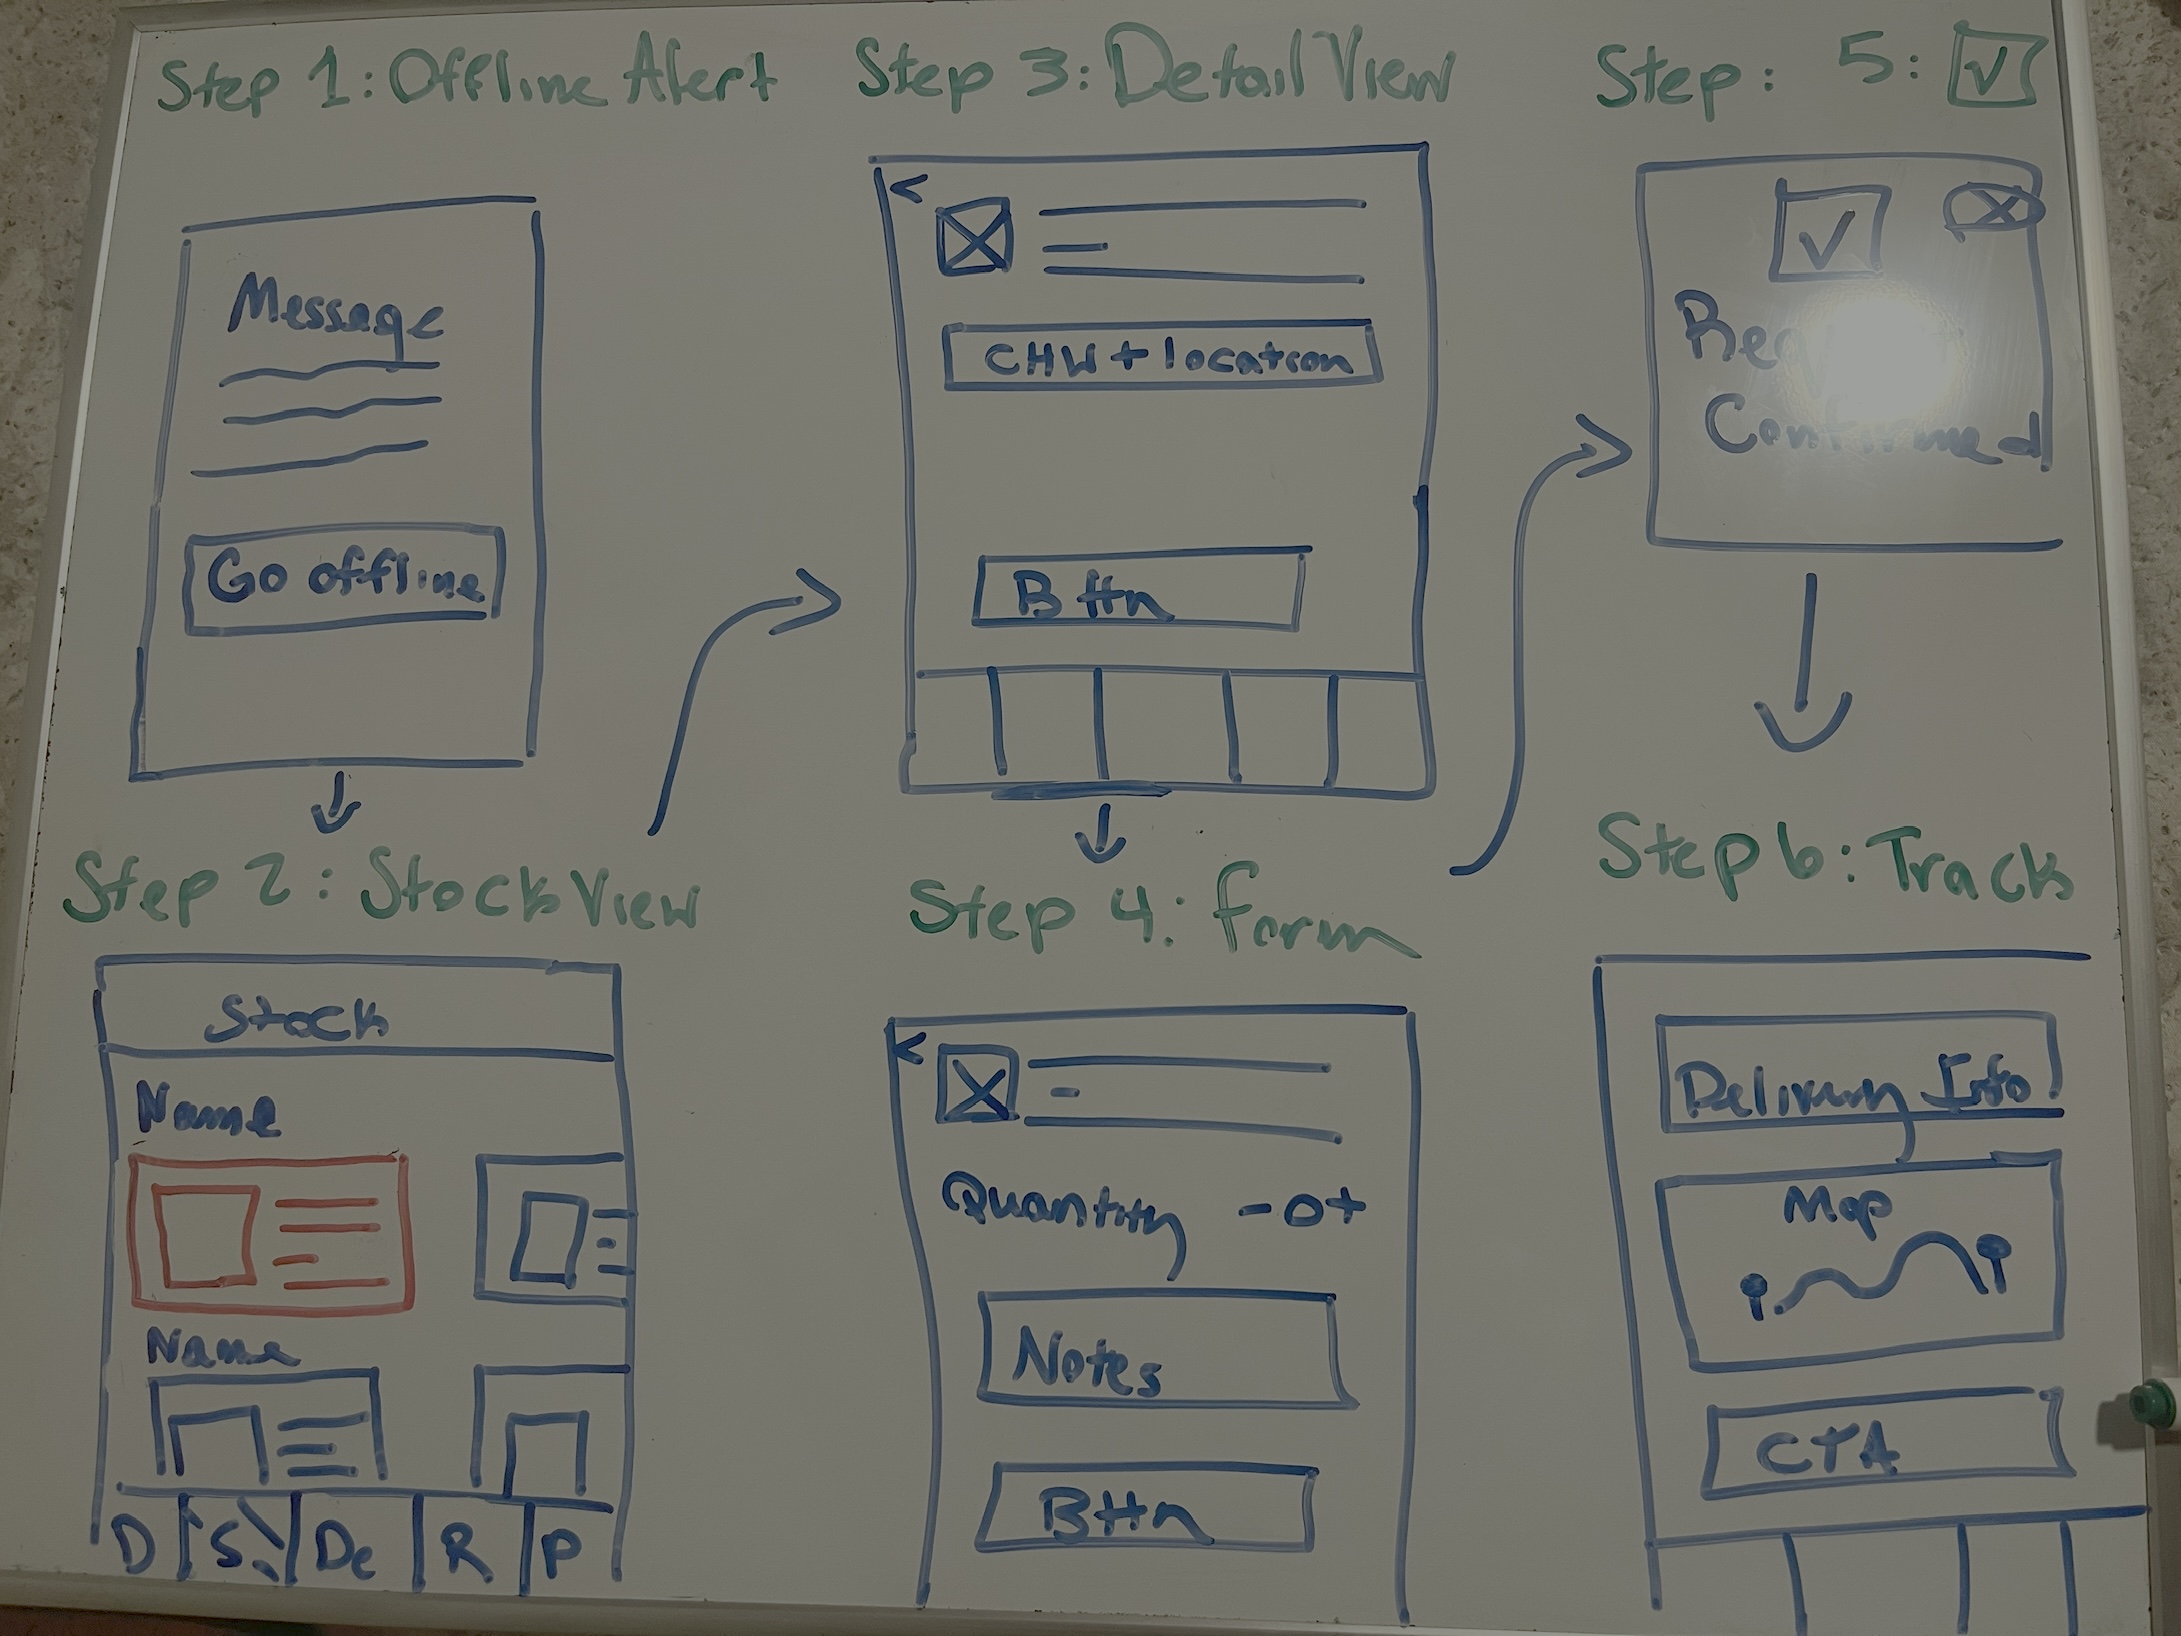 Step 1: Offline Alert
Message
Go offline
Step 2: Stock View
Stock
Name
Name
D S De R P
Step 3: Detail View
<
CHW + location
Bttn
Step 4: form
<
Quantity - 0 +
Notes
Bttn
Step: 5: ✓
✓ X
Confirmed
Step 6: Track
Delivery Info
Map
CTA